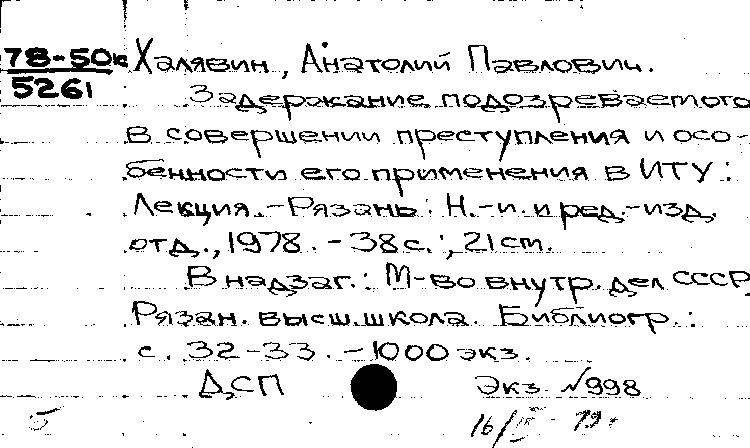 78-50к
5261
Халявин, Анатолий Павлович.
Задержание подозреваемого
в совершении преступления и осо-
бенности его применения в ИТУ:
Лекция.-Рязань: Н.-и. и ред.-изд.
отд., 1978. - 38 с.; 21 cm.
В надзаг.: М-во внутр. дел СССР,
Рязан. высш. школа. Библиогр.:
с. 32-33. - 1000 экз.
ДСП
Экз №998
5
16/III-79г